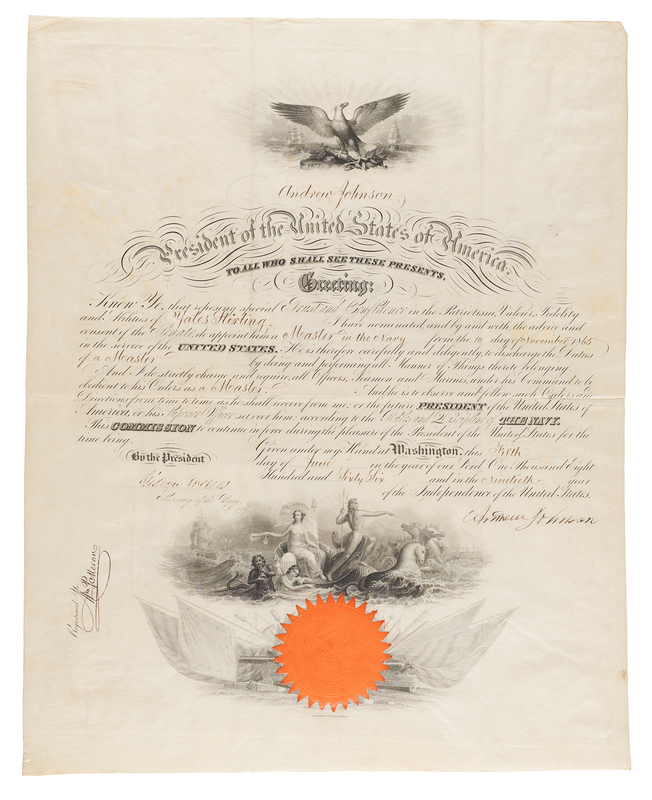 Andrew Johnson,
President of the United States of America.
TO ALL WHO SHALL SEE THESE PRESENTS,
Greeting:
Know Ye, that reposing special Trust and Confidence in the Patriotism, Valour, Fidelity
and Abilities of Yates Stirling I have nominated, and by and with the advice and
consent of the Senate, do appoint him a Master in the Navy from the 10 day of November 1865
in the service of the UNITED STATES. He is therefore carefully and diligently to discharge the Duties
of a Master by doing and performing all Manner of Things thereto belonging.
And I do strictly charge and require all Officers, Seamen and Marines, under his Command to be
obedient to his Orders as a Master And he is to observe and follow such Orders and
Directions from time to time as he shall receive from me, or the future PRESIDENT of the United States of
America, or his Superior Officer set over him, according to the Rules and Discipline of THE NAVY.
This COMMISSION to continue in force during the pleasure of the President of the United States for the
time being.
Given under my Hand at Washington, this Sixth
By the President
day of June in the year of our Lord One Thousand Eight
Hundred and Sixty Six and in the Ninetieth year
of the Independence of the United States.
Gideon Welles
Secretary of the Navy
Andrew Johnson
Registered